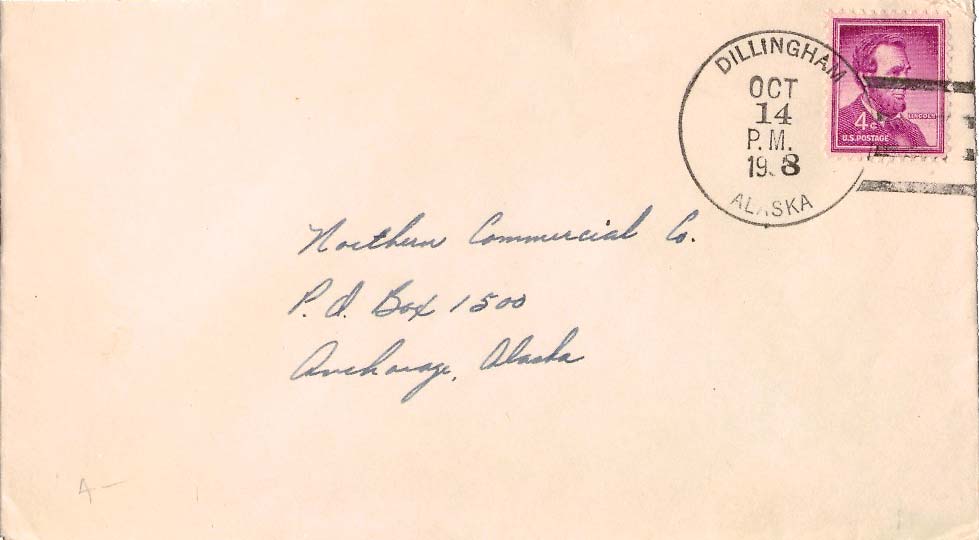 DILLINGHAM
OCT
14
P.M.
19 8
ALASKA
LINCOLN
4¢
U.S. POSTAGE
Northern Commercial Co.
P.O. Box 1500
Anchorage, Alaska
A-